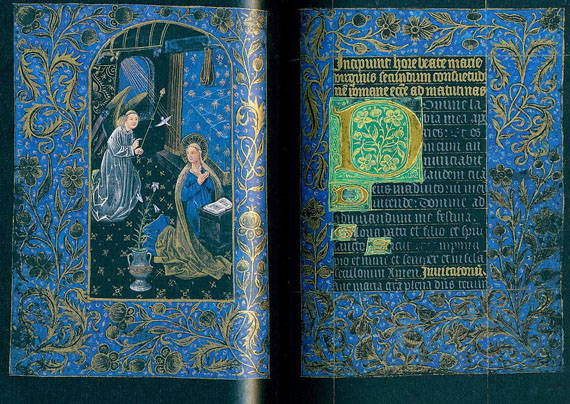 Incipiunt hore beate marie
virginis secundum consuetudi
nē romane ecce ad matutinas
Domine la
bia mea ap
ries: Et os
meum an
nunciabit
laudem tua
meum
intende: Domine ad
adiuvandum me festina.
Gloria patri et filio et spiri
sancto
pio et nunc et semper et in secula
seculorum Amen Invitatoriū.
Ave maria gr̄a plena dn̄s tecum